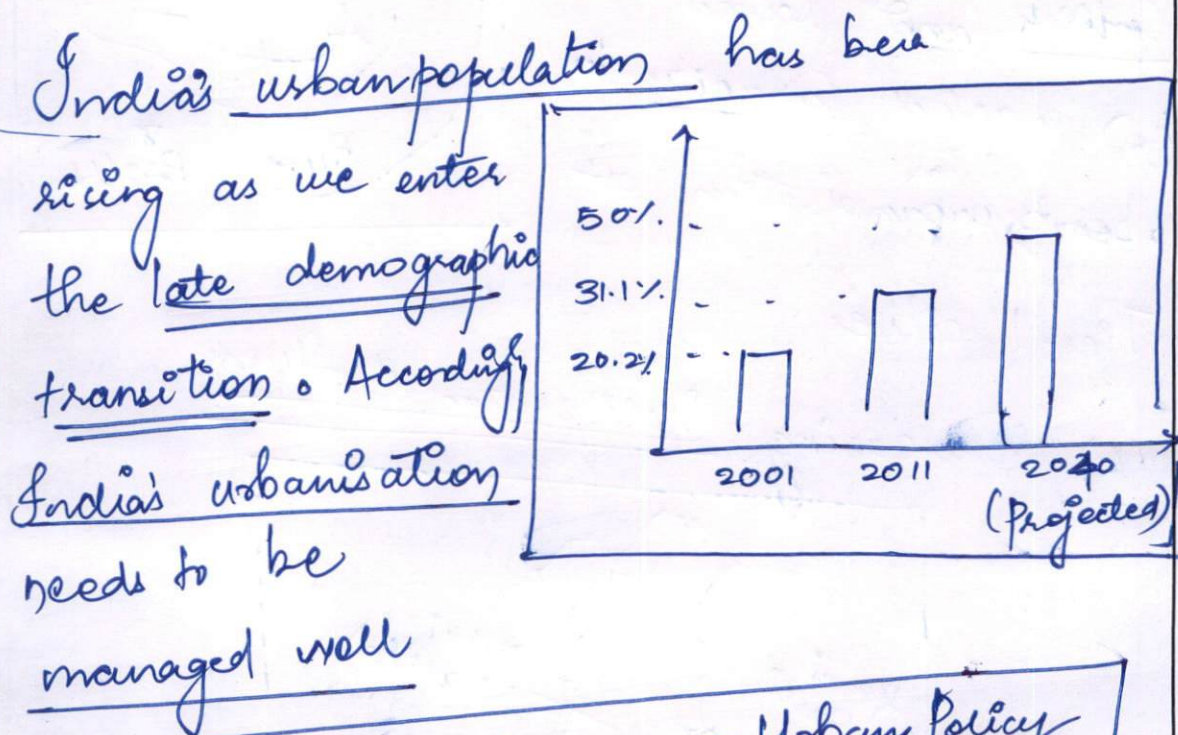 India's urban population has been
rising as we enter
the late demographic
transition. Accordingly,
India's urbanisation
needs to be
managed well
50%.
31.1%.
20.2%
2001 2011 2040
(Projected)
Urban Policy